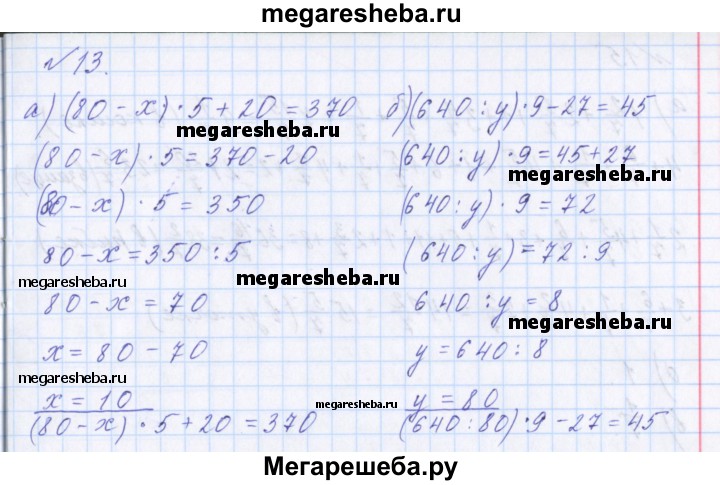 megaresheba.ru
№13.
а) (80 - x) · 5 + 20 = 370
megaresheba.ru
(80 - x) · 5 = 370 - 20
(80 - x) · 5 = 350
80 - x = 350 : 5
megaresheba.ru
megaresheba.ru
80 - x = 70
x = 80 - 70
megaresheba.ru
x = 10
megaresheba.ru
(80 - x) · 5 + 20 = 370
б) (640 : y) · 9 - 27 = 45
(640 : y) · 9 = 45 + 27
megaresheba.ru
(640 : y) · 9 = 72
(640 : y) = 72 : 9
640 : y = 8
megaresheba.ru
y = 640 : 8
y = 80
megaresheba.ru
(640 : 80) · 9 - 27 = 45
Мегарешеба.ру